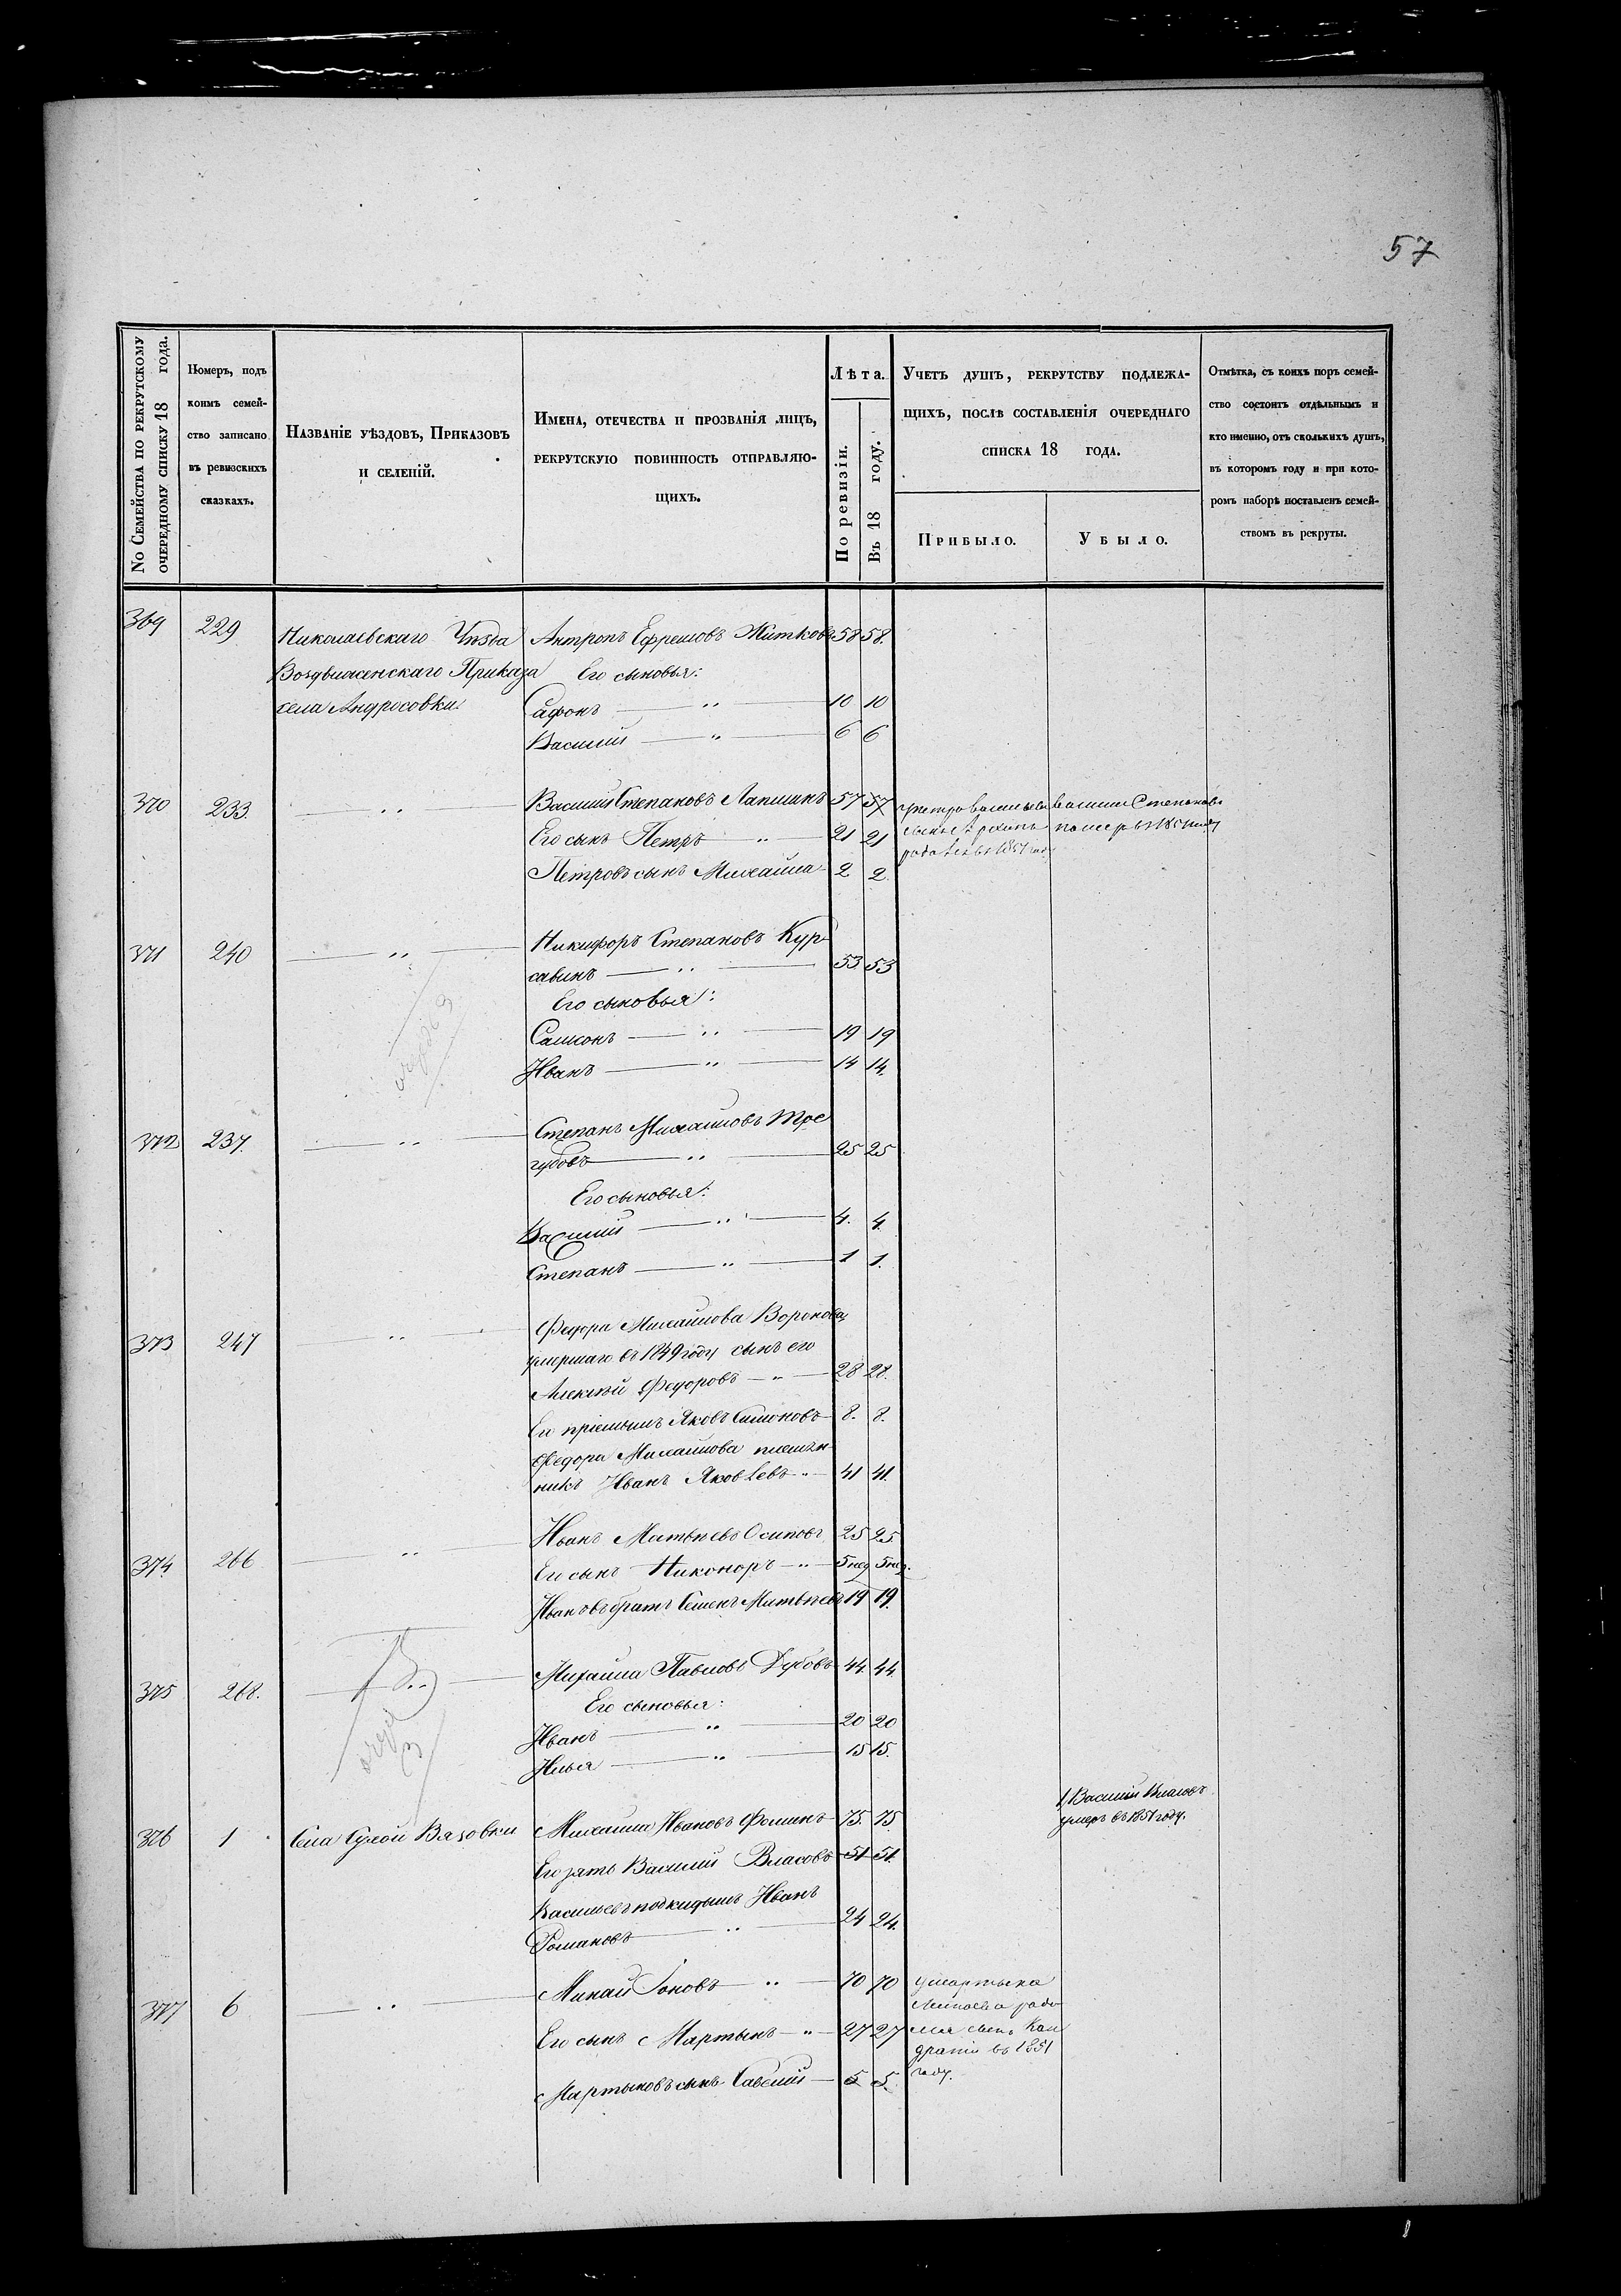 57
No Семейства по рекрутскому
очередному списку 18 года.
Номеръ, подъ
коимъ семей-
ство записано
въ ревизскихъ
сказкахъ.
Названіе уѣздовъ, Приказовъ
и селеній.
Имена, отечества и прозванія лицъ,
рекрутскую повинность отправляю-
щихъ.
Лѣта.
По ревизіи.
Въ 18 году.
Учетъ душъ, рекрутству подлежа-
щихъ, послѣ составленія очереднаго
списка 18 года.
Прибыло.
Убыло.
Отмѣтка, съ коихъ поръ семей-
ство состоитъ отдѣльнымъ и
кто именно, отъ сколькихъ душъ,
въ которомъ году и при кото-
ромъ наборѣ поставленъ семей-
ствомъ въ рекруты.
369 229 Николаевскаго Уѣзда Антропъ Ефремовъ Житковъ 58 58.
Воздвиженскаго Приказа Его сыновья:
села Андросовки. Сафонъ — " — 10 10
Василий — " — 6 6
370 233. — " — Василий Степановъ Лапшинъ 57 57
Его сынъ Петръ — " — 21 21
Петровъ сынъ Михайла 2 2.
у Петра Васильева
сынъ
родился въ 1851 году
Василий Степановъ
померъ въ 1851 году
371 240 — " — Никифоръ Степановъ Кур-
савинъ — " — 53 53
Его сыновья:
Самсонъ — " — 19 19
Иванъ — " — 14 14.
372 237. — " — Степанъ Михайловъ Трегубовъ — " — 25 25
Его сыновья:
Василий — " — 4. 4.
Степанъ — " — 1 1.
373 247 — " — Федора Михайлова Воронова,
умершаго въ 1849 году сынъ его
Алексѣй Федоровъ — " — 28 28.
Его пріемышъ Яковъ Симоновъ 8. 8.
Федора Михайлова племян-
никъ Иванъ Яковлевъ " — 41 41.
374. 266 — " — Иванъ Матвѣевъ Осиповъ 25 25.
Его сынъ Никоноръ — " — 5 нед 5 нед.
Ивановъ братъ Семенъ Матвѣевъ 19 19.
375 268. — " — Михайла Павловъ Дубовъ 44. 44.
Его сыновья:
Иванъ — " — 20 20
Илья — " — 15 15.
376 1 Села Сухой Вязовки Михайла Ивановъ Фоминъ 75. 75.
Его зять Василий Власовъ 51 51.
Васильевъ подкидышъ Иванъ
Романовъ — " — 24 24.
1, Василій Власовъ
умеръ въ 1851 году.
377 6 — " — Минай Іоновъ — " — 70 70
Его сынъ Мартынъ — " — 27 27
Мартыновъ сынъ Савелий — 5. 5.
у Мартына
Минаева роди-
лся сынъ Кон
дратій въ 1851
году.